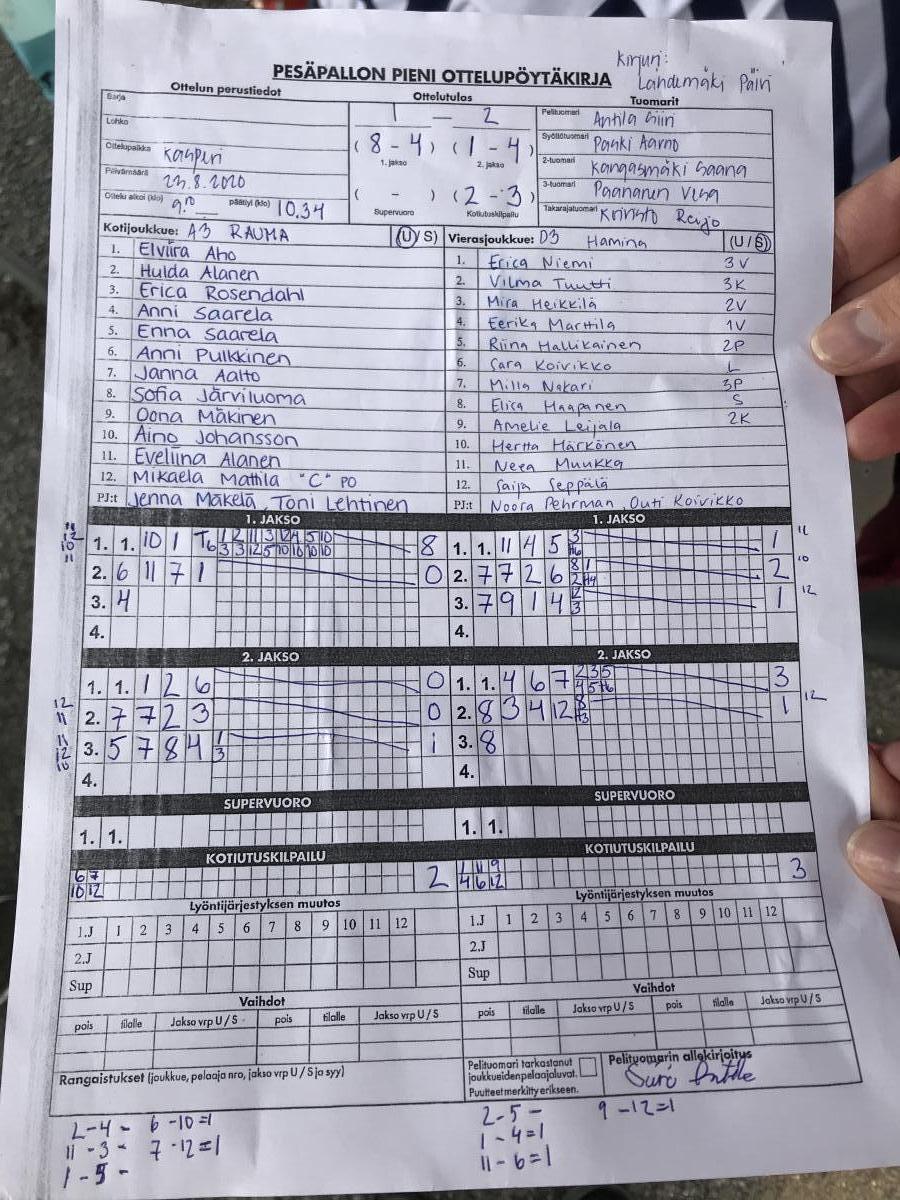 Kirjuri:
PESÄPALLON PIENI OTTELUPÖYTÄKIRJA Landemäki Päivi
Ottelun perustiedot Ottelutulos Tuomarit
Sarja 1 — 2 Pelituomari Antila Siiri
Lohko (8 - 4) (1 - 4) Syöttötuomari Panki Aarno
Ottelupaikka Kasperi 1. jakso 2. jakso 2-tuomari Kangasmäki Saana
Päivämäärä 23.8.2020 ( - ) (2 - 3) 3-tuomari Paananen Vesa
Ottelu alkoi (klo) 9.10 päättyi (klo) 10.34 Supervuoro Kotiutuskilpailu Takarajatuomari Reijo
Kotijoukkue: A3 RAUMA (U/S) Vierasjoukkue: D3 Hamina (U/S)
1. Elviira Aho 1. Erica Niemi 3V
2. Hulda Alanen 2. Vilma Tuutti 3K
3. Erica Rosendahl 3. Mira Heikkilä 2V
4. Anni Saarela 4. Eerika Marttila 1V
5. Enna Saarela 5. Riina Hallikainen 2P
6. Anni Pulkkinen 6. Sara Koivikko L
7. Janna Aalto 7. Milla Nakari 3P
8. Sofia Järviluoma 8. Elisa Haapanen S
9. Oona Mäkinen 9. Amelie Leijala 2K
10. Aino Johansson 10. Hertta Härkönen
11. Eveliina Alanen 11. Neea Muukka
12. Mikaela Mattila "C" PO 12. Saija Seppälä
PJ:t Jenna Mäkelä, Toni Lehtinen PJ:t Noora Pehrman Outi Koivikko
1. JAKSO 1. JAKSO
1. 1. 10 1 T6 1 12 11 3 12 4 5 10 8 1. 1. 11 4 5 3 1 11
3 3 12 5 10 10 10 10 H6
2. 6 11 7 1 0 2. 7 7 2 6 8 1 2 10
2 H4
3. 4 3. 7 9 1 4 12 1 12
3
4. 4.
2. JAKSO 2. JAKSO
1. 1. 1 2 6 0 1. 1. 4 6 7 2 3 5 3
4 5 H6
2. 7 7 2 3 0 2. 8 3 4 12 8 1 12
H3
3. 5 7 8 4 1 1 3. 8
3
4. 4.
SUPERVUORO SUPERVUORO
1. 1. 1. 1.
KOTIUTUSKILPAILU KOTIUTUSKILPAILU
6 7 2 1 11 9 3
10 12 4 6 12
Lyöntijärjestyksen muutos Lyöntijärjestyksen muutos
1.J 1 2 3 4 5 6 7 8 9 10 11 12 1.J 1 2 3 4 5 6 7 8 9 10 11 12
2.J 2.J
Sup Sup
Vaihdot Vaihdot
pois tilalle Jakso vrp U / S pois tilalle Jakso vrp U / S pois tilalle Jakso vrp U / S pois tilalle Jakso vrp U / S
Rangaistukset (joukkue, pelaaja nro, jakso vrp U / S ja syy) Pelituomari tarkastanut Pelituomarin allekirjoitus
joukkueiden pelaajaluvat.
Puutteet merkitty erikseen.
2-4 - 6-10=1 2-5 - 9-12=1
11-3 - 7-12=1 1-4=1
1-5 - 11-6=1